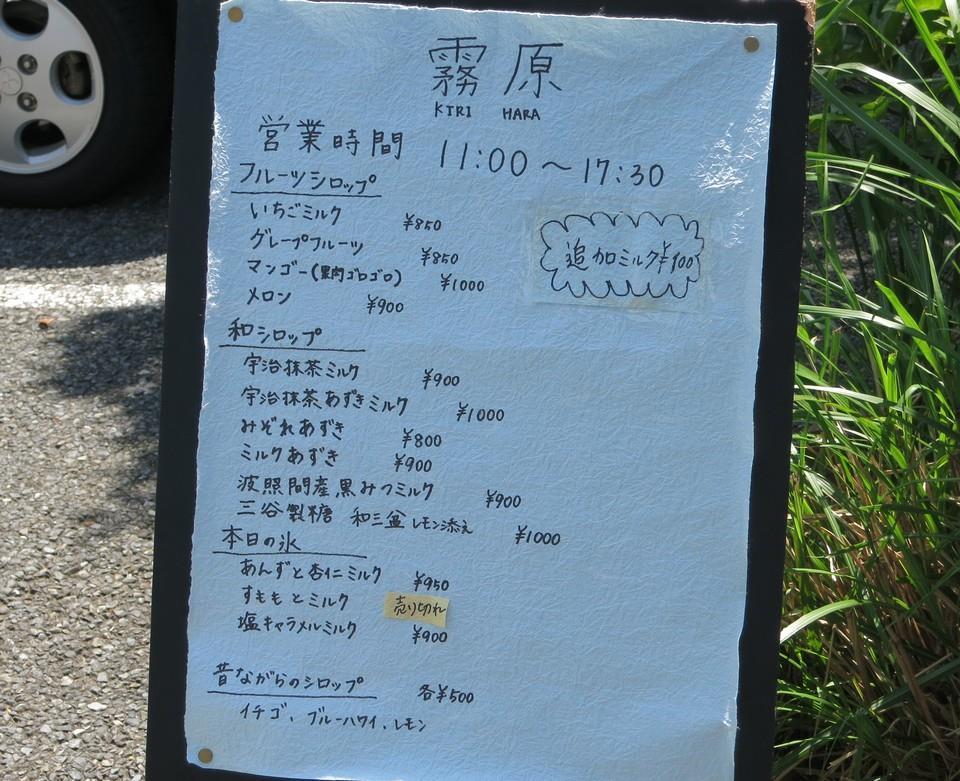 霧原
KIRI HARA
営業時間 11:00～17:30
フルーツシロップ
いちごミルク ¥850
グレープフルーツ ¥850
マンゴー(果肉ゴロゴロ) ¥1000
メロン ¥900
追加ミルク¥100
和シロップ
宇治抹茶ミルク ¥900
宇治抹茶あずきミルク ¥1000
みぞれあずき ¥800
ミルクあずき ¥900
波照間産黒みつミルク ¥900
三谷製糖 和三盆 レモン添え ¥1000
本日の氷
あんずと杏仁ミルク ¥950
すももとミルク 売り切れ
塩キャラメルミルク ¥900
昔ながらのシロップ 各¥500
イチゴ、ブルーハワイ、レモン